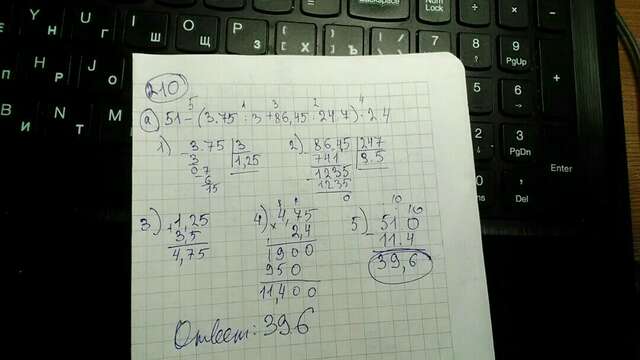 210
5 1 3 2 4
а) 51-(3.75:3+86,45:24.7)·2.4
1) 3.75 3 2) 86,45 247
3 1,25 741 3.5
07 1235
6 1235
15 0
3) 1,25 4) 4,75 5) 51 0
+ 3,5 × 2,4 - 11.4
4,75 1900 39,6
950
11,400
Ответ: 39.6
Backspace
Num Lock
Y Н U Г I Ш O Щ P З { Х } Ъ
7 8 9 PgUp
5 6
2 3 PgDn